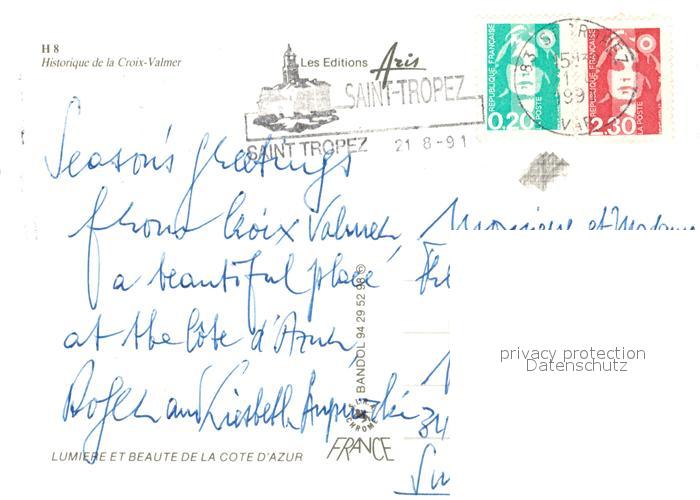 H 8
Historique de la Croix-Valmer
Les Editions Aris
SAINT-TROPEZ
SAINT TROPEZ 21-8-91
REPUBLIQUE FRANÇAISE
0,20
LA POSTE
REPUBLIQUE FRANÇAISE
2,30
LA POSTE
Season's greetings
from Croix Valmer,
a beautiful place
at the Côte d'Azur,
and Liesbeth
Monsieur et Madame
BANDOL 94 29 52 98 ©
FRANCE
LUMIERE ET BEAUTE DE LA COTE D'AZUR
privacy protection
Datenschutz